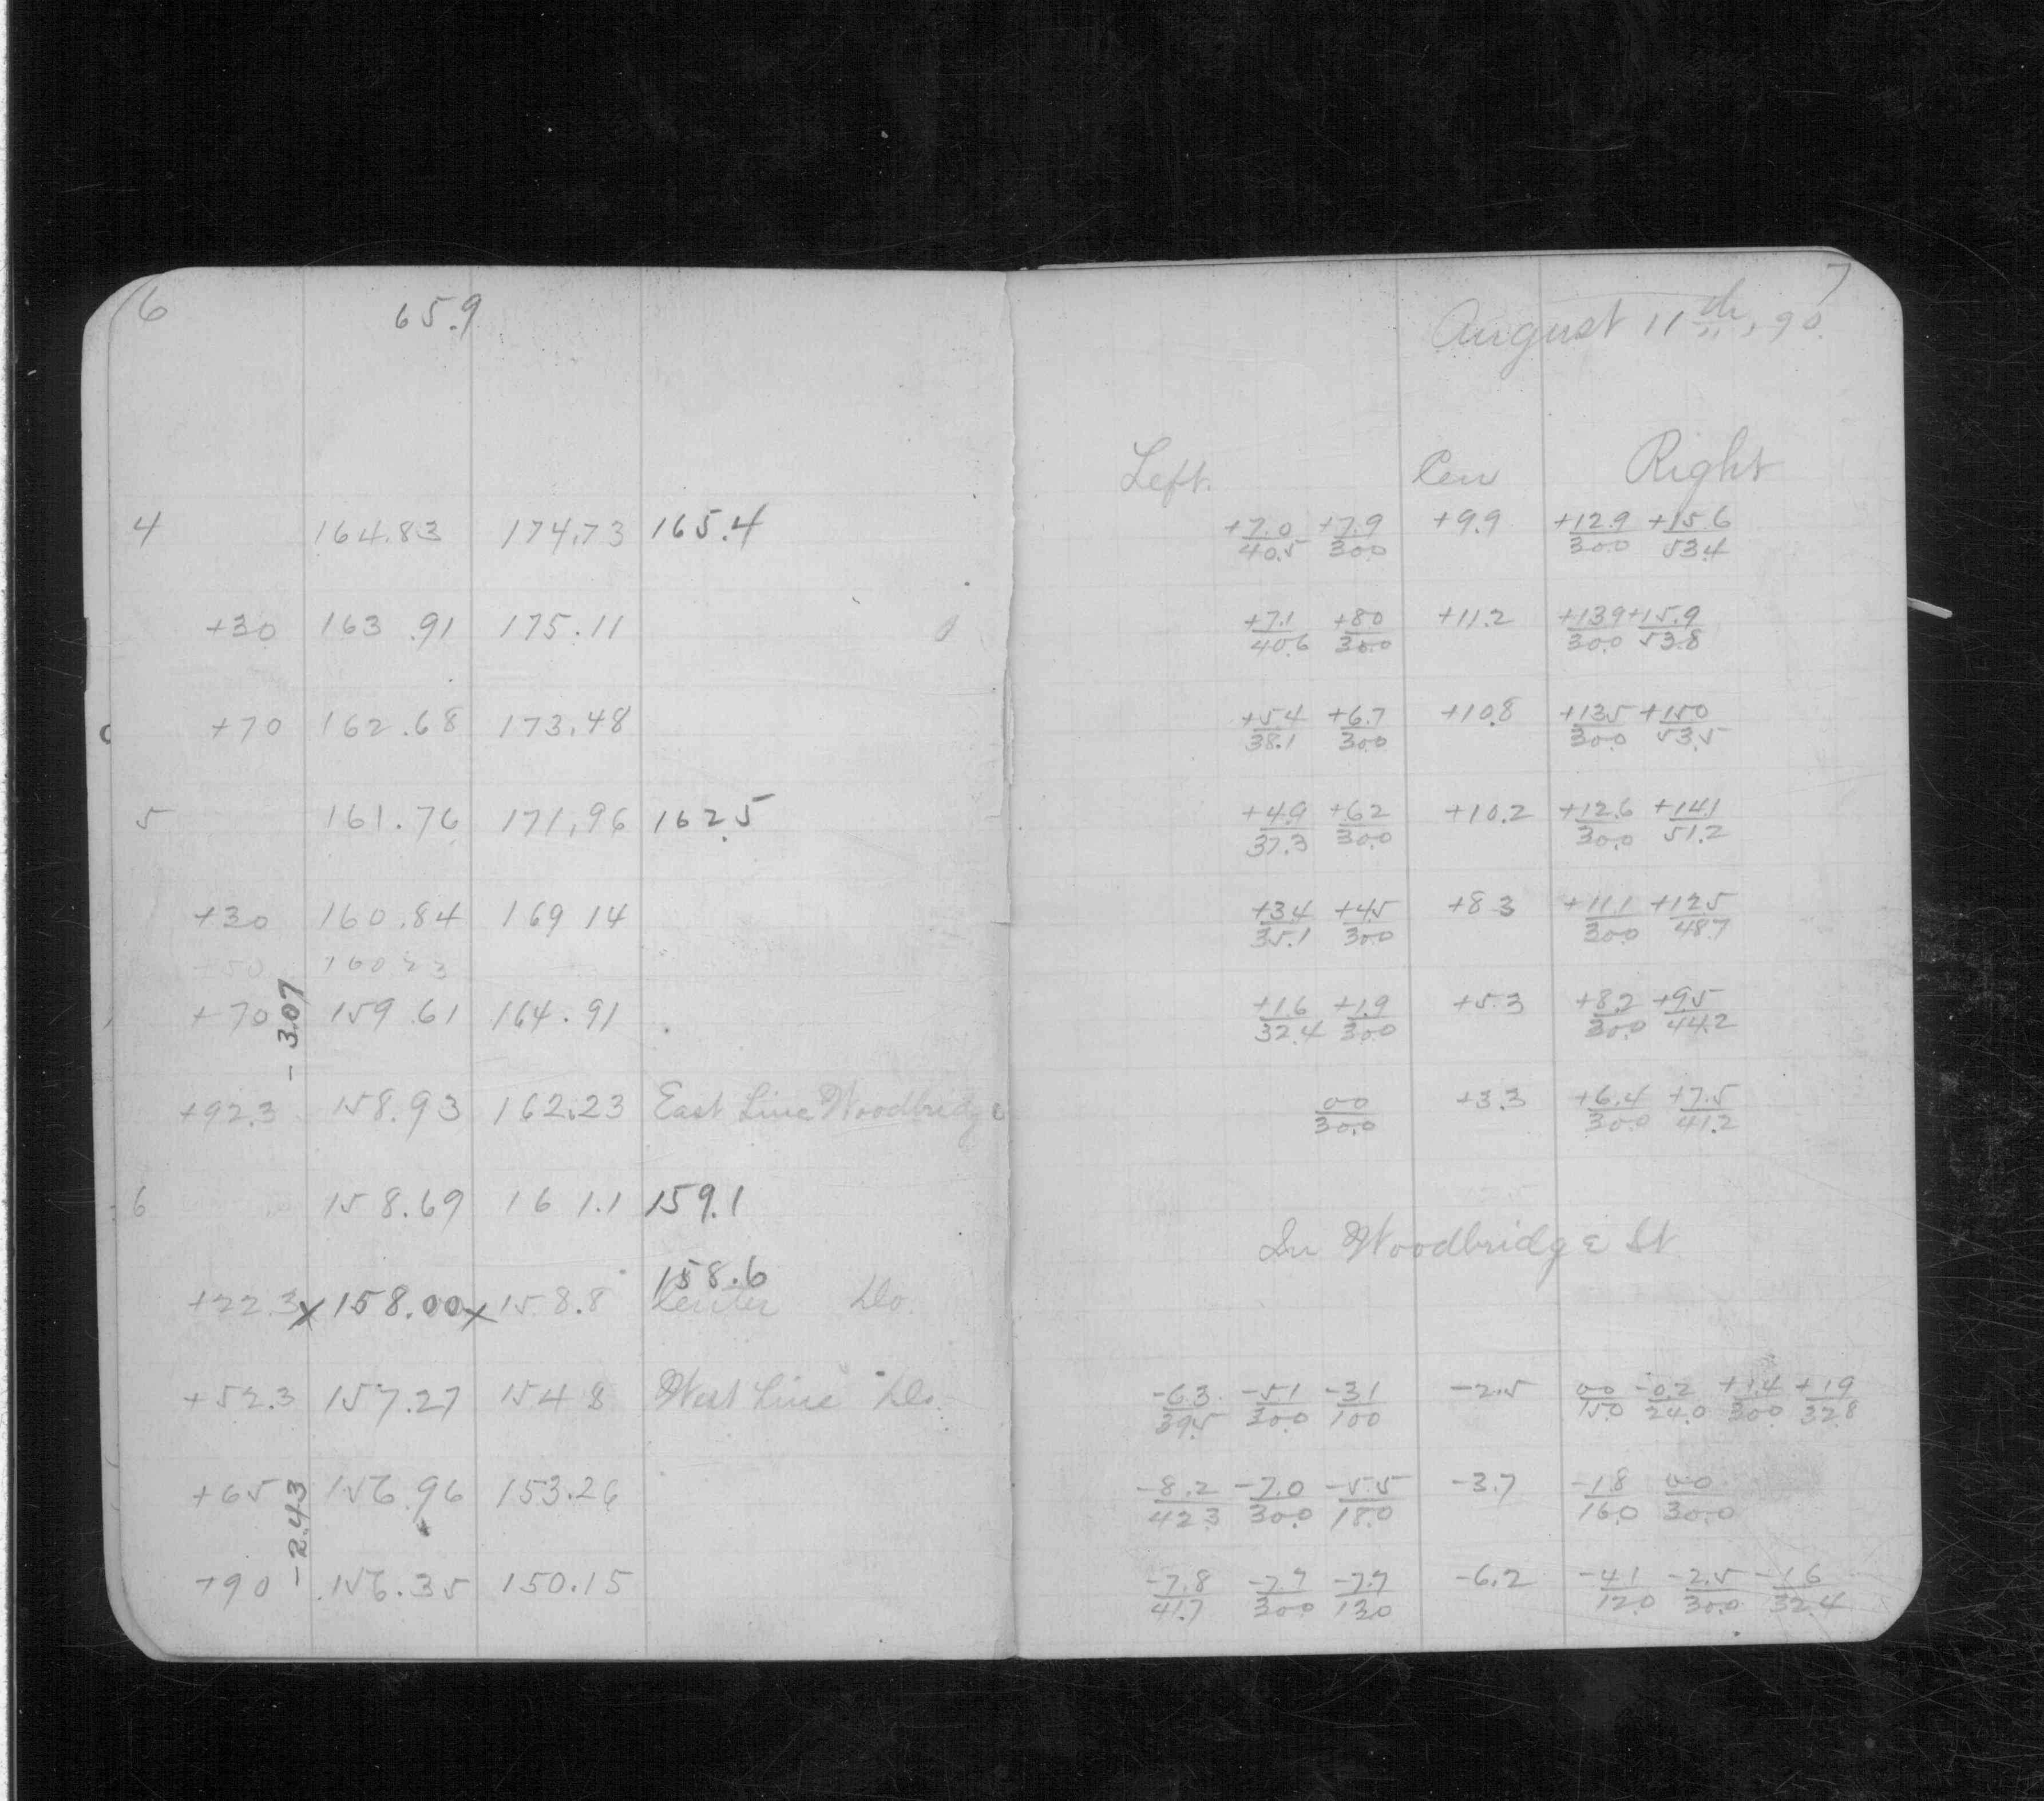 6
65.9
4 164.83 174.73 165.4
+30 163.91 175.11
+70 162.68 173.48
5 161.76 171.96 162.5
+30 160.84 169 14
+50 160 23
+70 159.61 164.91
- 3.07
+92.3 158.93 162.23 East Line Woodbridge
6 158.69 161.1 159.1
158.6
+22.3 x 158.00 x 158.8 Center Do
+52.3 157.27 154 8 West Line Do.
+65 156.96 153.26
- 2.43
+90 156.35 150.15
7
August 11th, 90.
Left. Cen Right
+7.0/40.5 +7.9/30.0 +9.9 +12.9/30.0 +15.6/53.4
+7.1/40.6 +8.0/30.0 +11.2 +13.9/30.0 +15.9/53.8
+5.4/38.1 +6.7/30.0 +10.8 +13.5/30.0 +15.0/53.5
+4.9/37.3 +6.2/30.0 +10.2 +12.6/30.0 +14.1/51.2
+3.4/35.1 +4.5/30.0 +8.3 +11.1/30.0 +12.5/48.7
+1.6/32.4 +1.9/30.0 +5.3 +8.2/30.0 +9.5/44.2
0.0/30.0 +3.3 +6.4/30.0 +7.5/41.2
In Woodbridge St.
-6.3/39.5 -5.1/30.0 -3.1/10.0 -2.5 0.0/15.0 -0.2/24.0 +1.4/30.0 +1.9/32.8
-8.2/42.3 -7.0/30.0 -5.5/18.0 -3.7 -1.8/16.0 0.0/30.0
-7.8/41.7 -7.7/30.0 -7.7/13.0 -6.2 -4.1/12.0 -2.5/30.0 -1.6/32.4